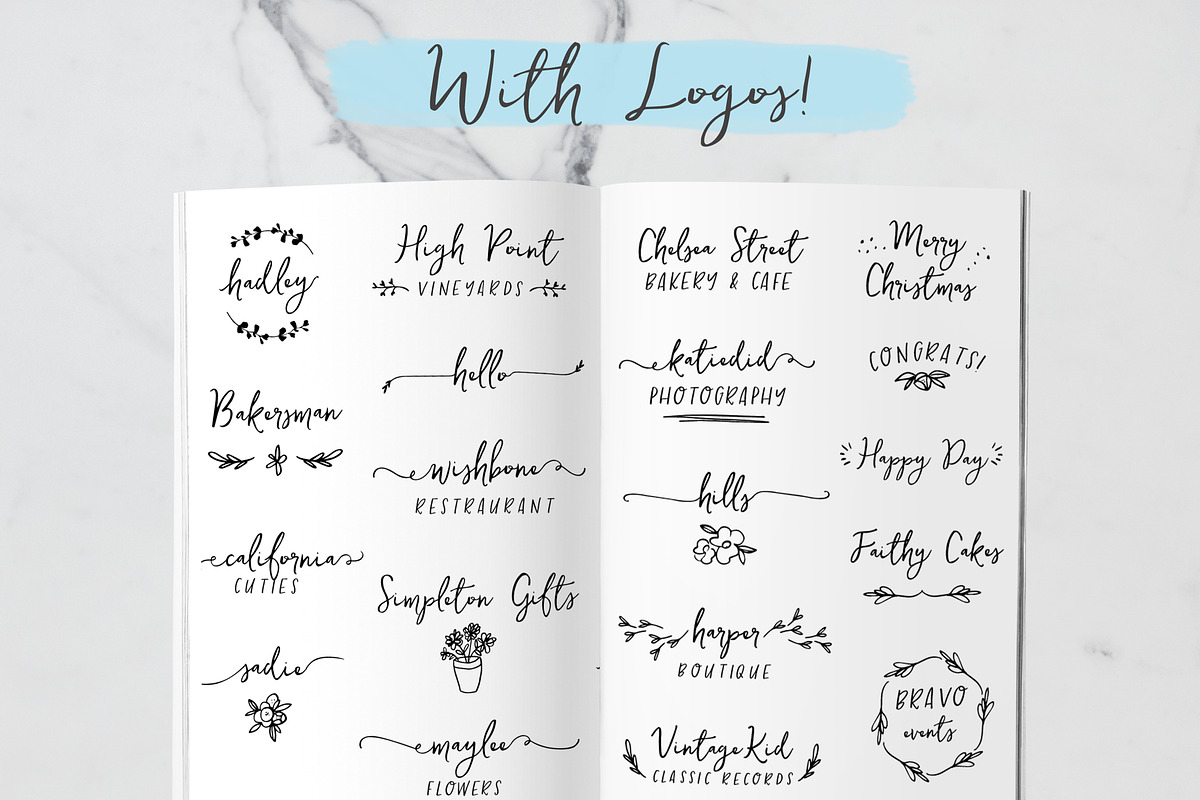 With Logos!
hadley
Bakersman
california
CUTIES
sadie
High Point
VINEYARDS
hello
wishbone
RESTRAURANT
Simpleton Gifts
maylee
FLOWERS
Chelsea Street
BAKERY & CAFE
katiedid
PHOTOGRAPHY
hills
harper
BOUTIQUE
VintageKid
CLASSIC RECORDS
Merry
Christmas
CONGRATS!
Happy Day
Faithy Cakes
BRAVO
events